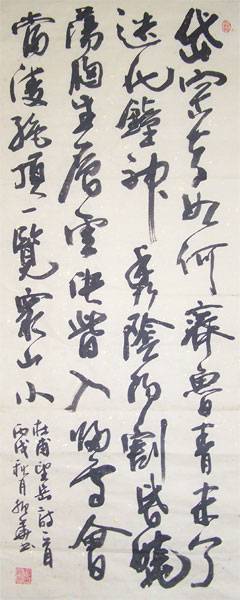 岱宗夫如何齊魯青未了
造化鐘神秀陰陽割昏曉
蕩胸生層雲決眥入歸鳥會
當凌絶頂一覽衆山小
杜甫望岳詩一首
丙戌秋月書